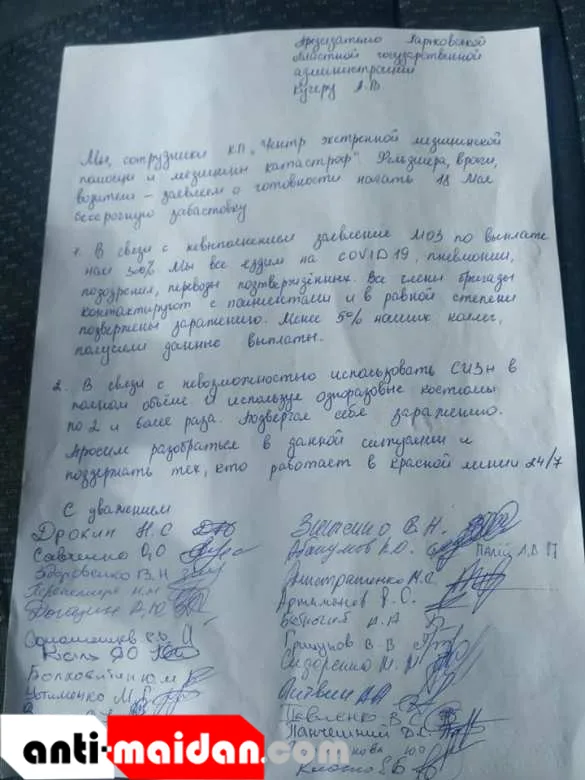 Председателю Харковской
областной государственной
администрации
Кучеру А.В
Мы, сотрудники КП "Центр экстренной медицинской
помощи и медицины катастроф" Фельдшера, врачи,
водители - заявляем о готовности начать 18 Мая
бессрочную забастовку
1. В связи с невыполнением заявление МОЗ по выплате
нам 300% Мы все ездим на COVID19, пневмонии,
подозрения, переводы подтверждённых. Все члены бригады
контактируют с пациентами и в равной степени
подвержены заражению. Менее 5% наших коллег,
получили данные выплаты.
2. В связи с невозможностью использовать СИЗН в
полном объёме. И используя одноразовые костюмы
по 2 и более раза. Подвергая себя заражению.
Просим разобраться в данной ситуации и
поддержать тех, кто работает в красной линии 24/7
С уважением
Дрокин Н.С
Савченко
Здоровенко В.Н
Абакумов
Артюмонов Р.С.
Грицунов В В
Сидоренко М.
Болховитин Ю М
Устименко М.
Литвин А А
Павленко В С
Панчешний
anti-maidan.com